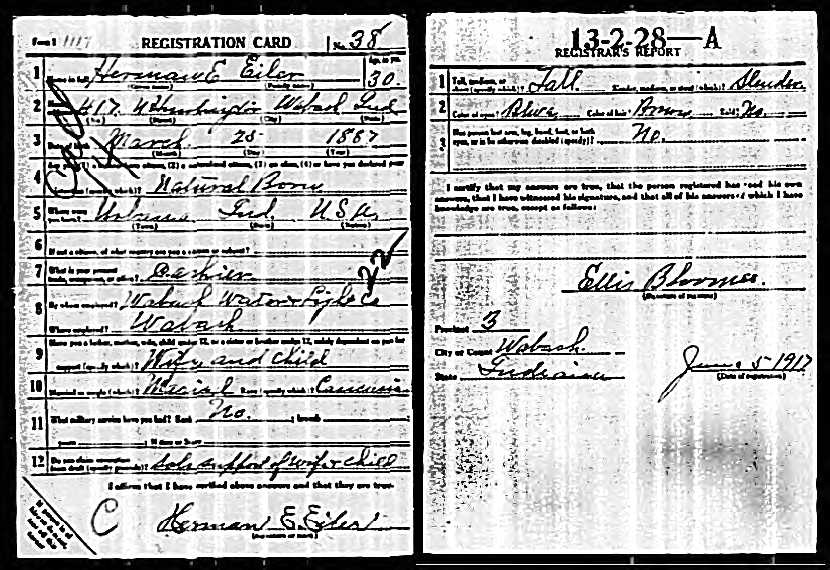 Form 1 1117 REGISTRATION CARD No. 38
1 Name in full Herman E Eiler Age, in yrs. 30.
(Given name) (Family name)
2 417 W Huntington Wabash Ind
(No.) (Street) (City) (State)
3 Date of birth March 25 1887
(Month) (Day) (Year)
4 Are you (1) a natural-born citizen, (2) a naturalized citizen, (3) an alien, (4) or have you declared your
intention (specify which)? Natural Born
5 Where were you born? Ind. U.S.A.
(Town) (State) (Nation)
6 If not a citizen, of what country are you a citizen or subject?
7 What is your present trade, occupation, or office? Cashier 22
8 By whom employed? Wabash Water & Light Co
Where employed? Wabash
9 Have you a father, mother, wife, child under 12, or a sister or brother under 12, solely dependent on you for
support (specify which)? Wife and Child
10 Married or single (which)? Married Race (specify which)? Caucasian
11 What military service have you had? Rank No. ; branch
years ; Nation or State
12 Do you claim exemption from draft (specify grounds)? Sole support of wife & child
I affirm that I have verified above answers and that they are true.
C Herman E Eiler
(Signature or mark)
13-2-28-A
REGISTRAR'S REPORT
1 Tall, medium, or short (specify which)? Tall Slender, medium, or stout (which)? Slender
2 Color of eyes? Blue Color of hair? Brown Bald? No.
3 Has person lost arm, leg, hand, foot, or both eyes, or is he otherwise disabled (specify)? No.
I certify that my answers are true, that the person registered has read his own
answers, that I have witnessed his signature, and that all of his answers of which I have
knowledge are true, except as follows:
Ellis Bloomer.
(Signature of registrar)
Precinct 3
City or County Wabash
State Indiana
June 5 1917
(Date of registration)